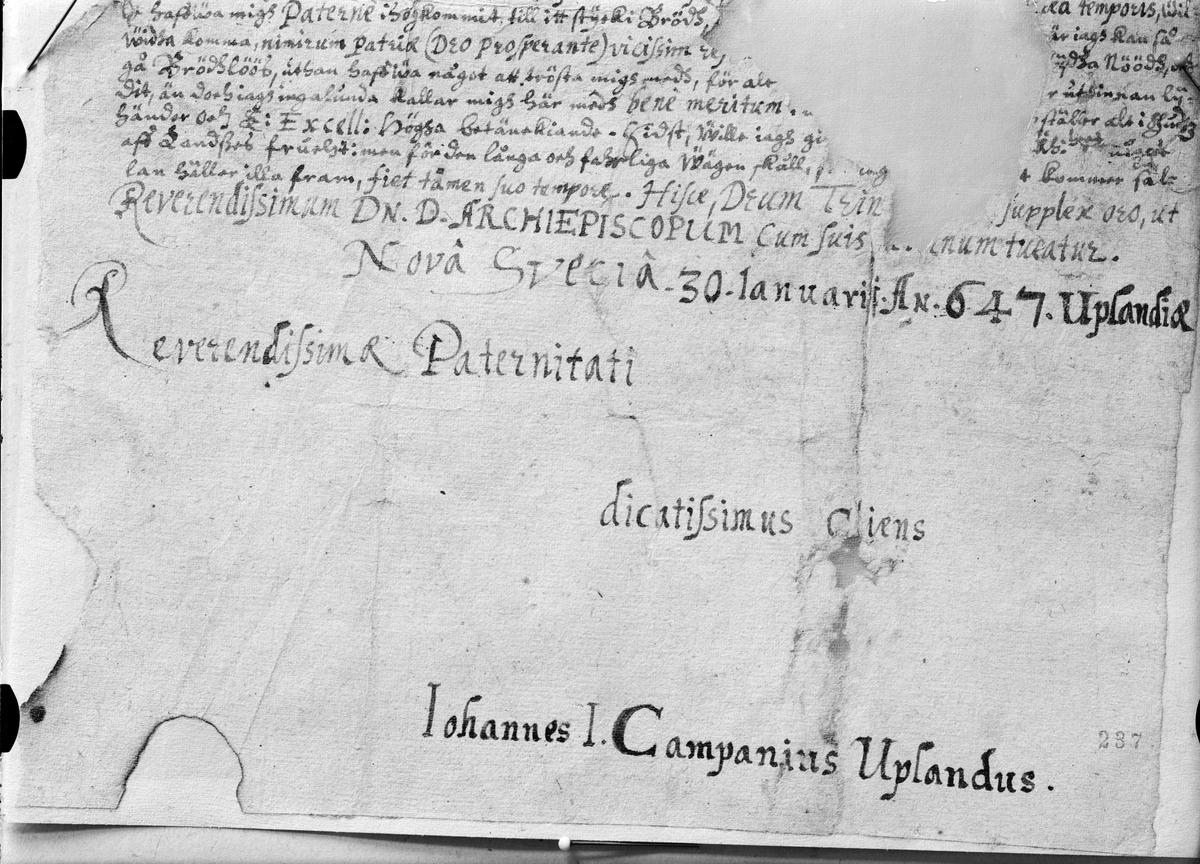 haffwa migh Paterne ihogkommit, till itt stycki Brödh, æa temporis, wil
widha komma, nimirum patriæ (DEO prosperante) vicissim är iagh kan så
gå Brödhlööt, uthan haffwa något att trösta migh medh, för alt ydha Nöödh,
dit, än doch iagh ingalunda kallar migh här medh bene meritum. r uthinnan
händer och E: Excell: Högha betänckiande. Sidst, wille iagh ställer alt i
aff Landhes fruckt: men för den långa och fahrliga wägen skull,
lan håller illa fram, fiet tamen suo tempore. Hisce, DEUM TRIN kommer
Reverendissimum DN. D. ARCHIEPISCOPUM cum suis supplex oro, ut
numtueatur.
Novâ Sveciâ. 30. Ianuarii. AN. 647. Uplandiæ
Reverendissimæ Paternitati
dicatissimus Cliens
Iohannes I. Campanius Uplandus.
237